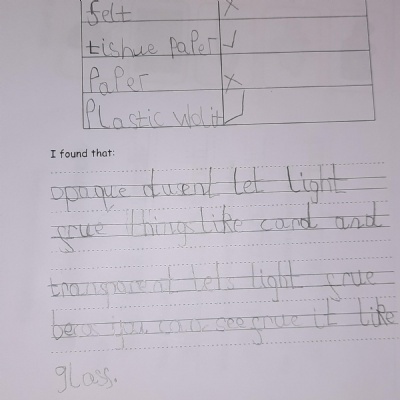 felt x
tishue paper ✓
Paper x
Plastic wolit ✓
I found that:
opaque dusent let light
grue things like card and
transparent lets light grue
becos you can see grue it like
glass.